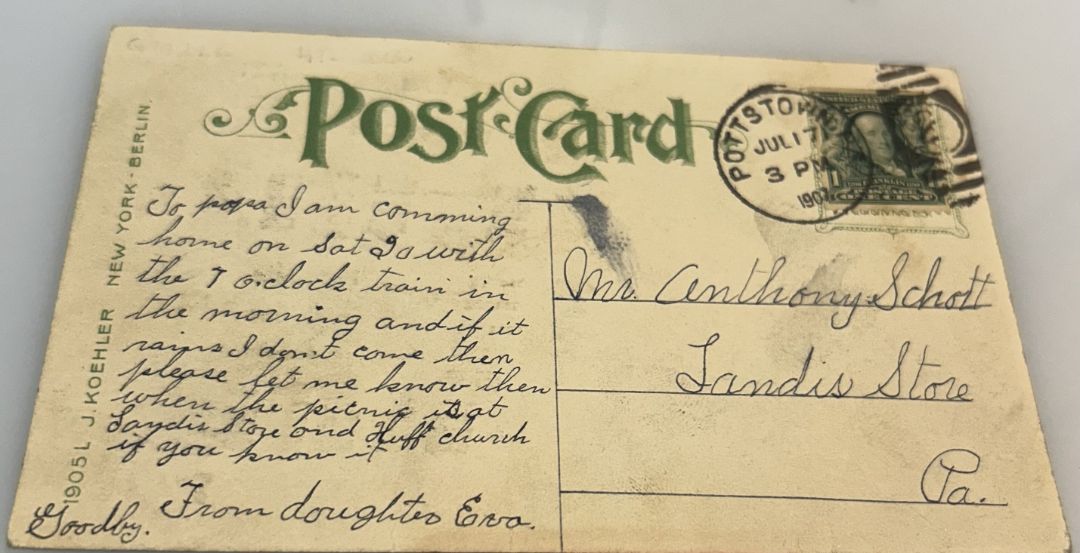 Post Card
POTTSTOWN
JUL 17
3 PM
1907
1905 L J. KOEHLER NEW YORK - BERLIN.
To papa I am comming
home on Sat 20 with
the 7 o.clock train in
the morning and if it
rains I dont come then
please let me know then
when the picnic is at
Landis Store and Huff church
if you know it
From doughter Eva.
Goodby.
Mr. Anthony Schott
Landis Store
Pa.